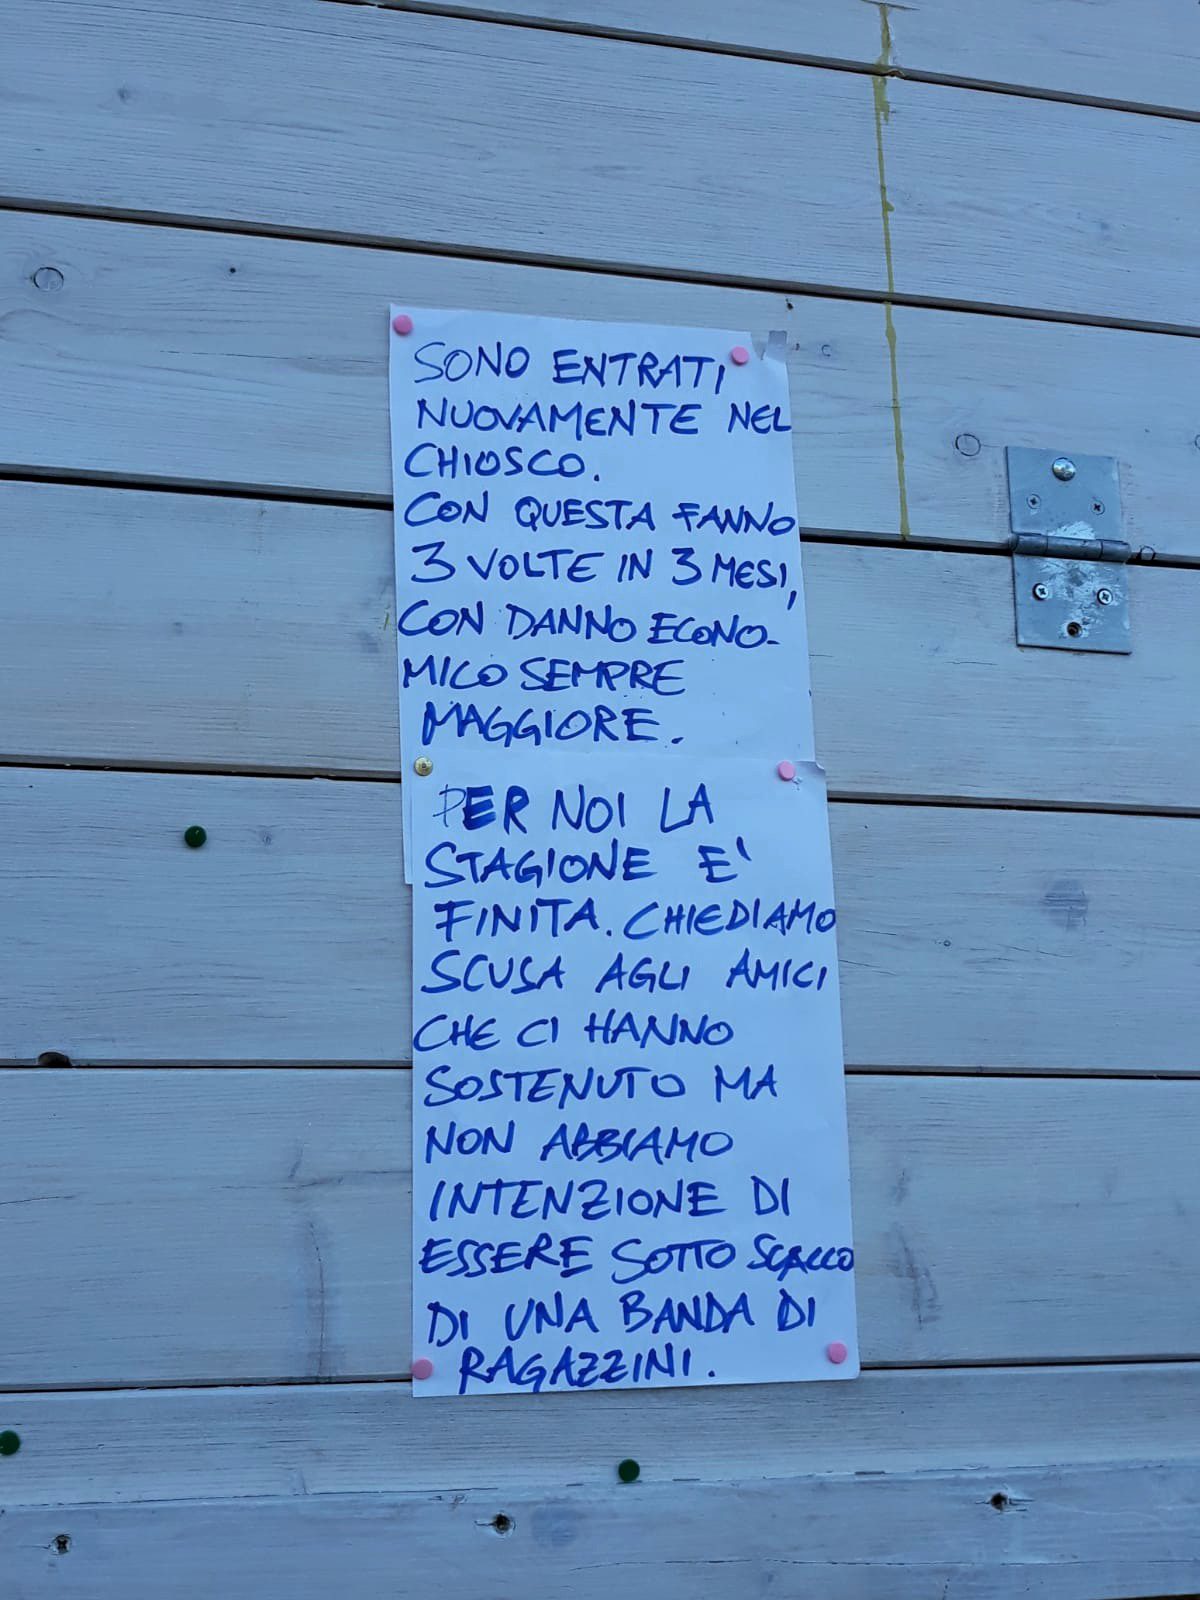 SONO ENTRATI
NUOVAMENTE NEL
CHIOSCO.
CON QUESTA FANNO
3 VOLTE IN 3 MESI,
CON DANNO ECONO-
MICO SEMPRE
MAGGIORE.
PER NOI LA
STAGIONE E'
FINITA. CHIEDIAMO
SCUSA AGLI AMICI
CHE CI HANNO
SOSTENUTO MA
NON ABBIAMO
INTENZIONE DI
ESSERE SOTTO SCACCO
DI UNA BANDA DI
RAGAZZINI.